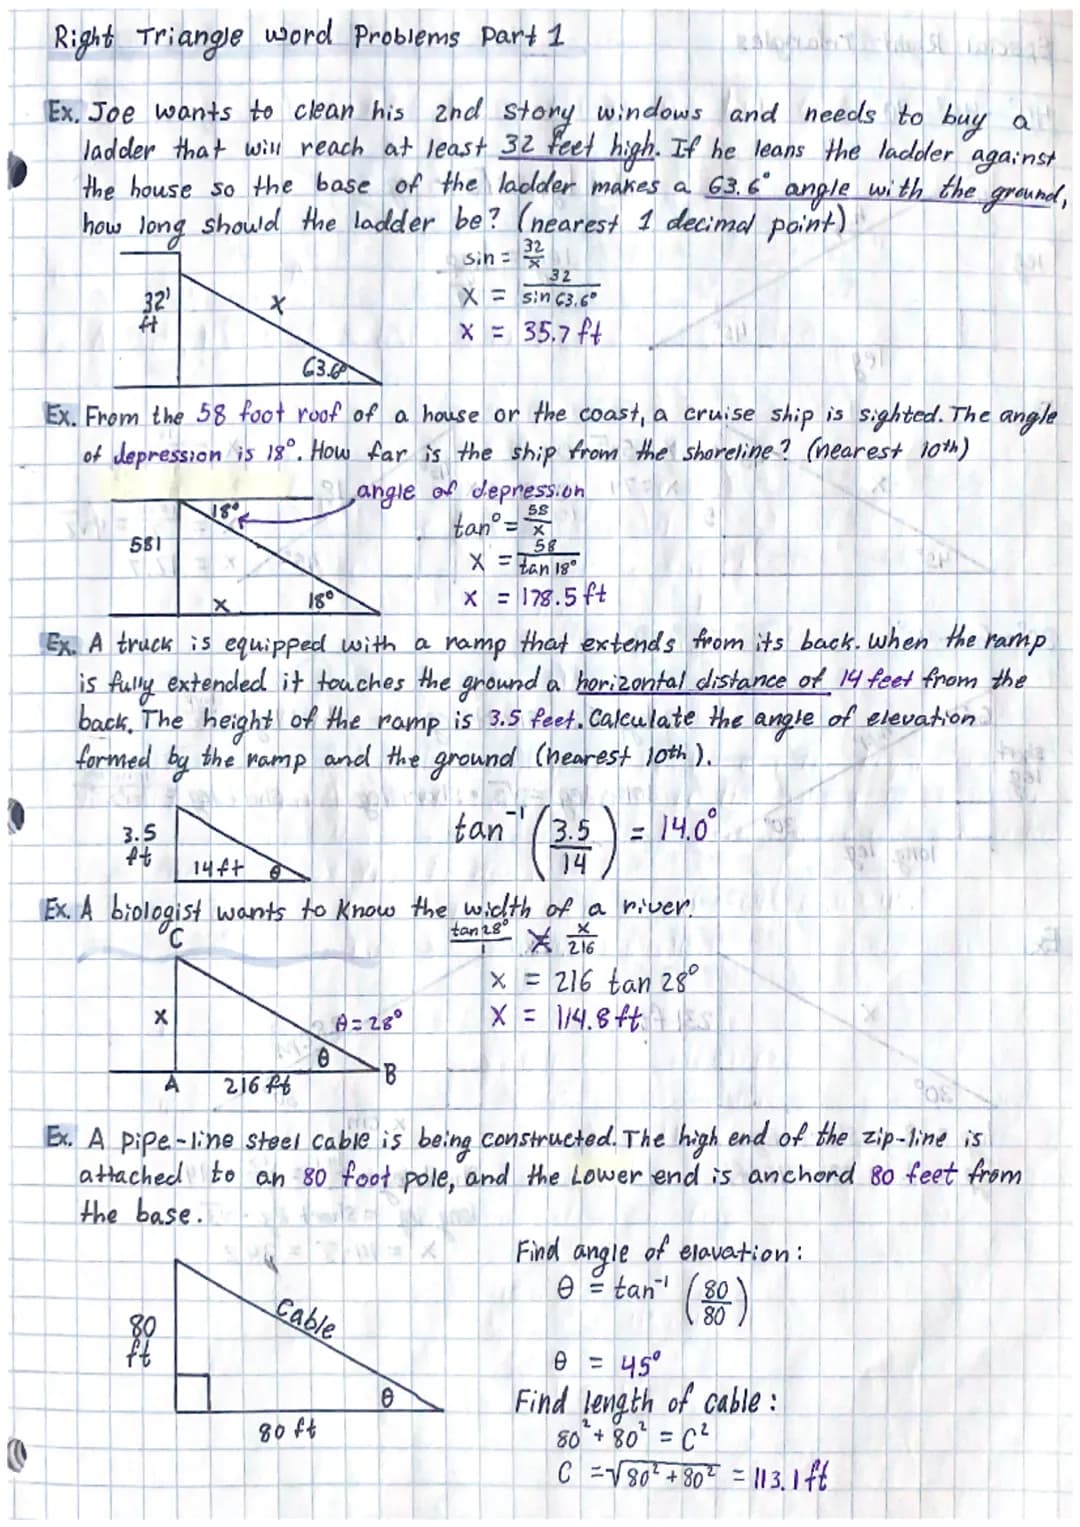 Right Triangle word Problems Part 1
Ex. Joe wants to clean his 2nd story windows and needs to buy a
ladder that will reach at least 32 feet high. If he leans the ladder against
the house so the base of the ladder makes a 63.6° angle with the ground,
how long should the ladder be? (nearest 1 decimal point)
sin = 32/x
x = 32/sin 63.6°
x = 35.7 ft
32'
ft
x
63.6°
Ex. From the 58 foot roof of a house or the coast, a cruise ship is sighted. The angle
of depression is 18°. How far is the ship from the shoreline? (nearest 10th)
angle of depression
18°
581
x
18°
tan° = 58/x
x = 58/tan 18°
x = 178.5 ft
Ex. A truck is equipped with a ramp that extends from its back. when the ramp
is fully extended it touches the ground a horizontal distance of 14 feet from the
back. The height of the ramp is 3.5 feet. Calculate the angle of elevation
formed by the ramp and the ground (nearest 10th).
3.5
ft
14ft
θ
tan⁻¹ (3.5/14) = 14.0°
Ex. A biologist wants to know the width of a river.
C
x
θ = 28°
θ
A
216 ft
B
tan28°/1 x/216
x = 216 tan 28°
x = 114.8 ft
Ex. A pipe-line steel cable is being constructed. The high end of the zip-line is
attached to an 80 foot pole, and the Lower end is anchord 80 feet from
the base.
80
ft
Cable
θ
80 ft
Find angle of elavation:
θ = tan⁻¹ (80/80)
θ = 45°
Find length of cable:
80² + 80² = C²
C = √80² + 80² = 113.1 ft